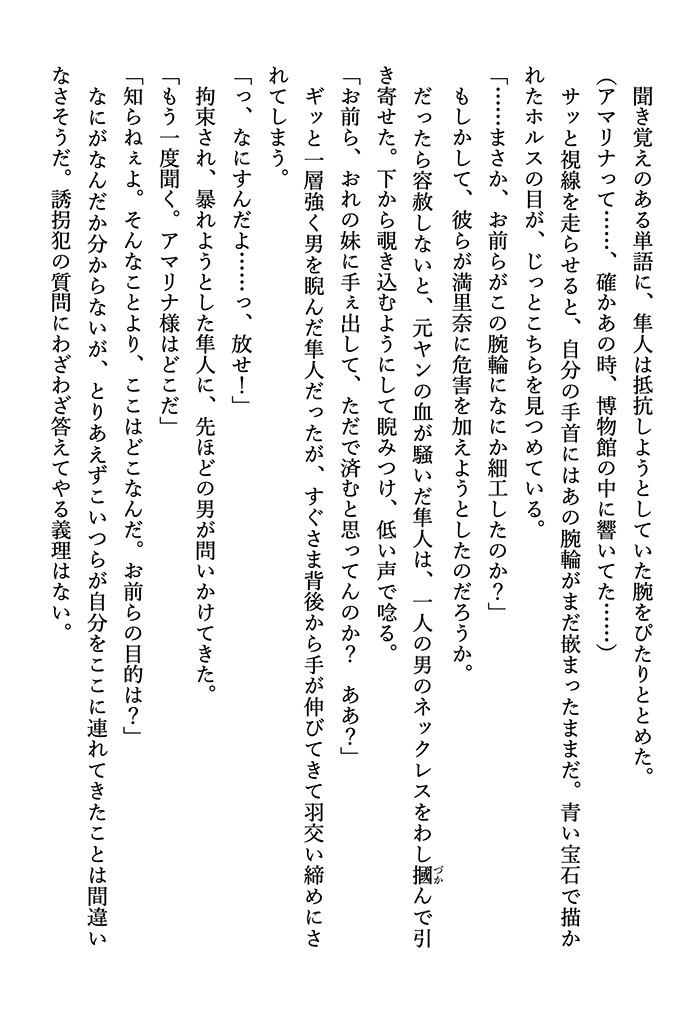 聞き覚えのある単語に、隼人は抵抗しようとしていた腕をぴたりととめた。
(アマリナって……、確かあの時、博物館の中に響いてた……)
サッと視線を走らせると、自分の手首にはあの腕輪がまだ嵌まったままだ。青い宝石で描か
れたホルスの目が、じっとこちらを見つめている。
「……まさか、お前らがこの腕輪になにか細工したのか?」
もしかして、彼らが満里奈に危害を加えようとしたのだろうか。
だったら容赦しないと、元ヤンの血が騒いだ隼人は、一人の男のネックレスをわし摑んで引
き寄せた。下から覗き込むようにして睨みつけ、低い声で唸る。
「お前ら、おれの妹に手ぇ出して、ただで済むと思ってんのか? ああ?」
ギッと一層強く男を睨んだ隼人だったが、すぐさま背後から手が伸びてきて羽交い締めにさ
れてしまう。
「っ、なにすんだよ……っ、放せ!」
拘束され、暴れようとした隼人に、先ほどの男が問いかけてきた。
「もう一度聞く。アマリナ様はどこだ」
「知らねぇよ。そんなことより、ここはどこなんだ。お前らの目的は?」
なにがなんだか分からないが、とりあえずこいつらが自分をここに連れてきたことは間違い
なさそうだ。誘拐犯の質問にわざわざ答えてやる義理はない。
づか